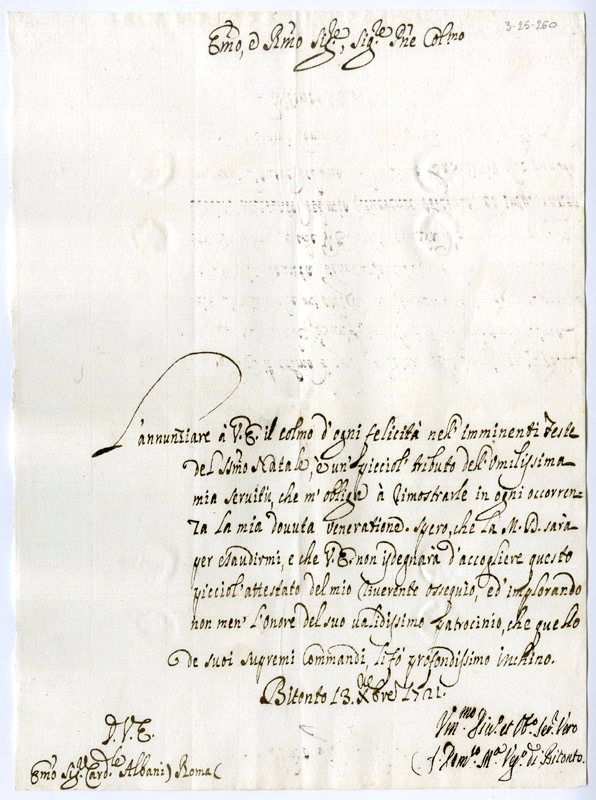 3-25-260
Emo, e Rmo Sigre, Sigre Pne Colmo
L'annunziare à V.E. il colmo d'ogni felicità nell'imminenti Feste
del SSmo Natale, è un picciol' tributo dell'Umilissima
mia servitù, che m'obliga à dimostrarle in ogni occorren=
za la mia dovuta veneratione. Spero, che la M. D. sarà
per esaudirmi, e che V.E. non isdegnarà d'accogliere questo
picciol'attestato del mio riverente ossequio, ed implorando
non men' l'onore del suo validissimo patrocinio, che quello
de suoi supremi Commandi, li fò profondissimo inchino.
Bitonto 13. Xbre 1721.
D.V.E.
Vmmo Divo et Obo Sere Vero
Emo Sigr Cardle Albani) Roma(
f. Domco Ma Vesco di Bitonto.